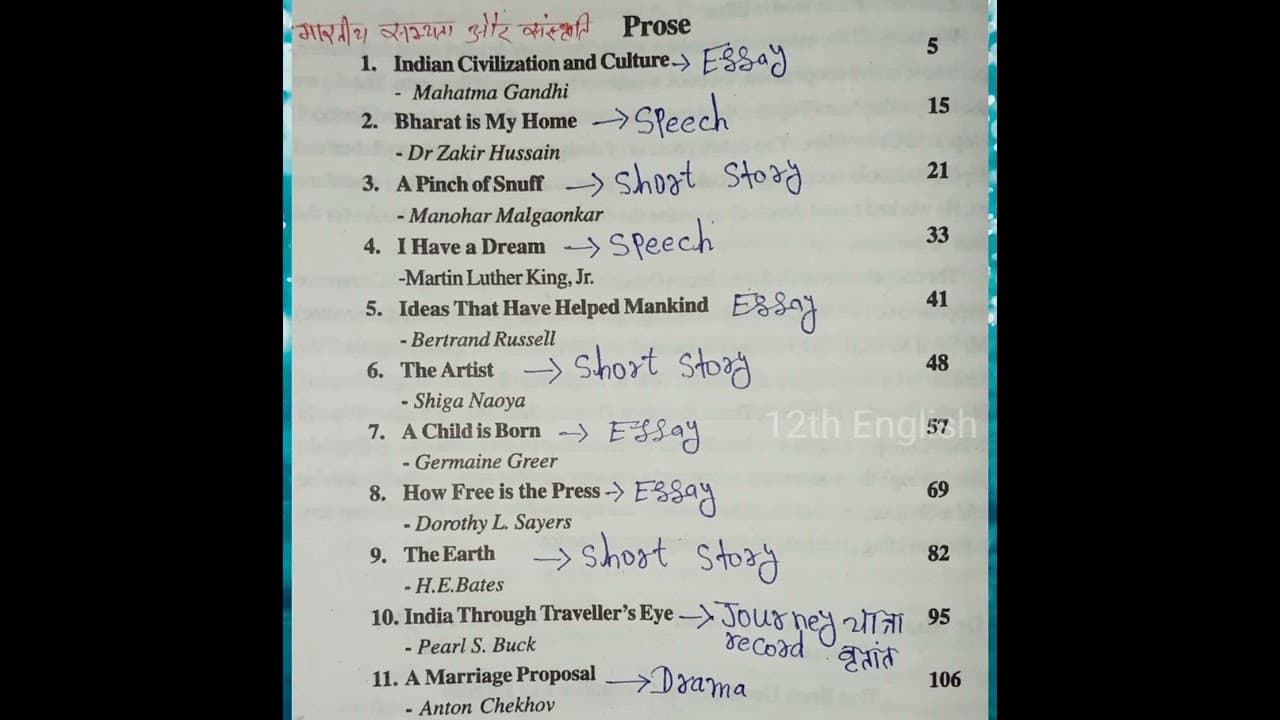 भारतीय सभ्यता और संस्कृति Prose
1. Indian Civilization and Culture → Essay 5
- Mahatma Gandhi
2. Bharat is My Home → Speech 15
- Dr Zakir Hussain
3. A Pinch of Snuff → Short Story 21
- Manohar Malgaonkar
4. I Have a Dream → Speech 33
-Martin Luther King, Jr.
5. Ideas That Have Helped Mankind Essay 41
- Bertrand Russell
6. The Artist → Short Story 48
- Shiga Naoya
7. A Child is Born → Essay 57
12th English
- Germaine Greer
8. How Free is the Press → Essay 69
- Dorothy L. Sayers
9. The Earth → Short Story 82
- H.E.Bates
10. India Through Traveller's Eye → Journey यात्रा 95
- Pearl S. Buck record वृतांत
11. A Marriage Proposal → Drama 106
- Anton Chekhov